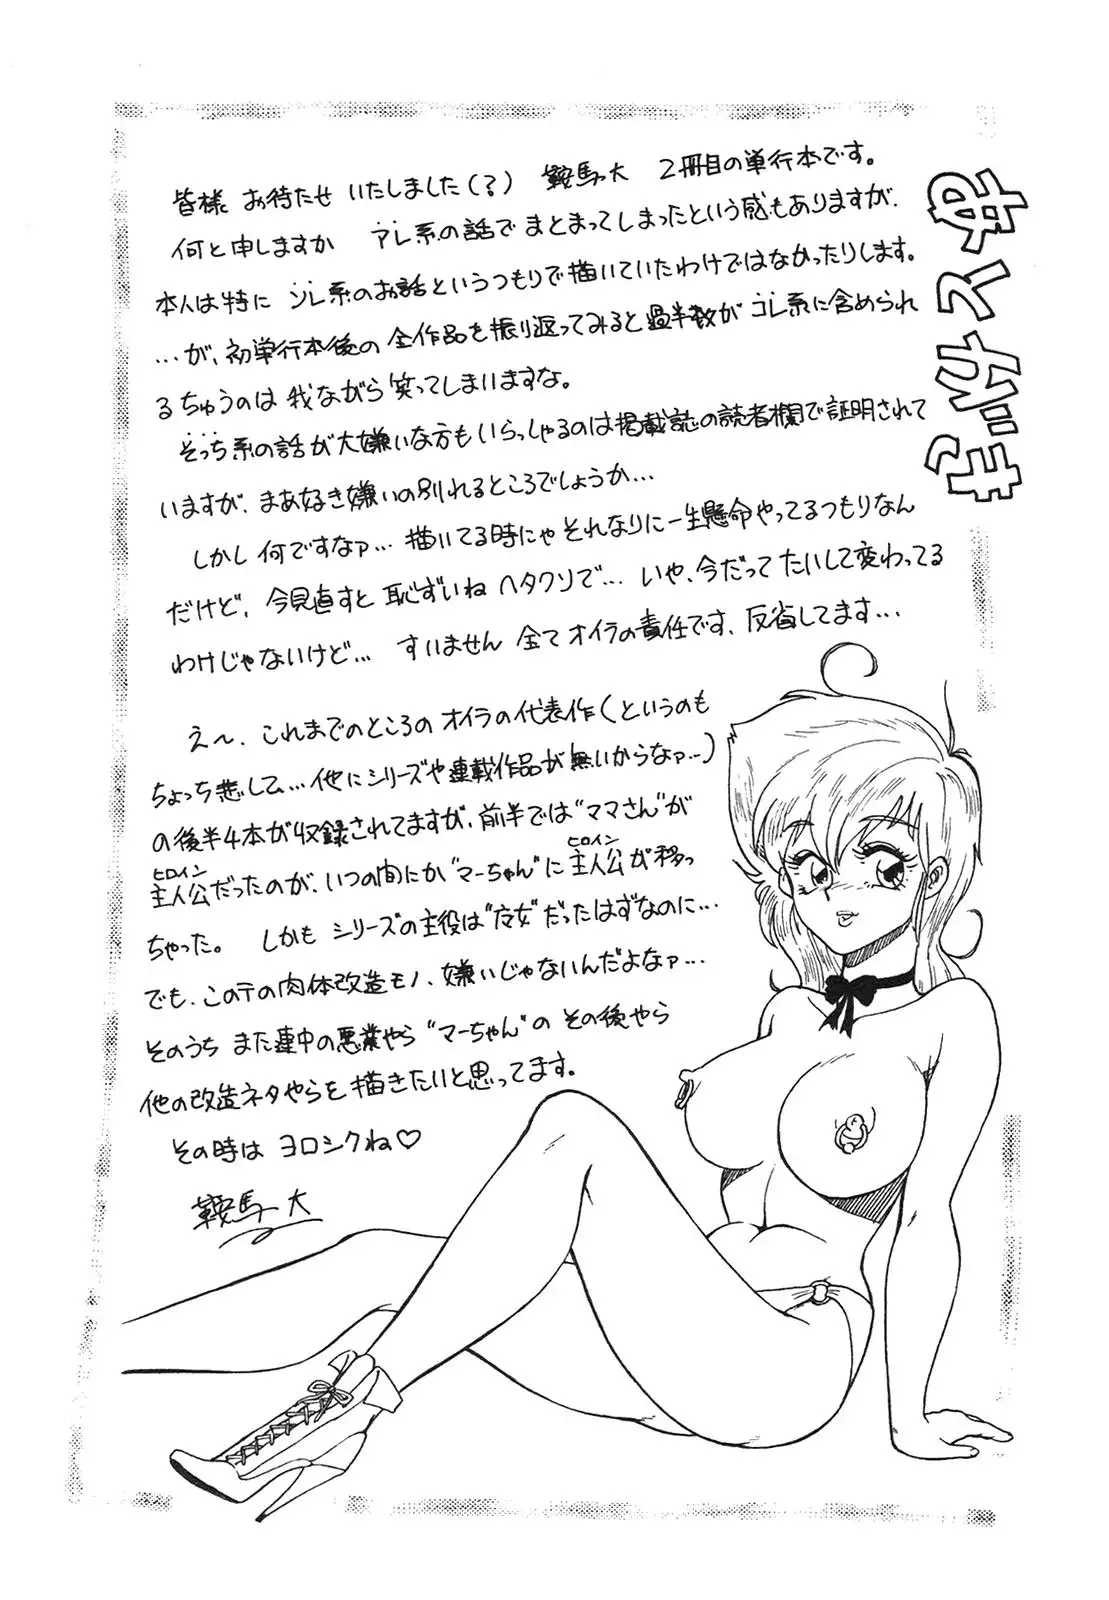 あとがき
皆様 お待たせ いたしました(?) 鞍馬大 2冊目の単行本です。
何と申しますか アレ系の話で まとまってしまったという感もありますが、
本人は特に ソレ系のお話というつもりで描いていたわけではなかったりします。
…が、初単行本後の 全作品を振り返ってみると 過半数が コレ系に含められ
るちゅうのは 我ながら 笑ってしまいますな。
そっち系の話が大嫌いな方も いらっしゃるのは掲載誌の読者欄で証明されて
いますが、まあ好き嫌いの別れるところでしょうか…
しかし 何ですなァ… 描いてる時にゃ それなりに一生懸命やってるつもりなん
だけど、今見直すと 恥ずいね ヘタクソで… いや、今だって たいして変わってる
わけじゃないけど… すいません 全て オイラの責任です、反省してます…
え〜、これまでのところの オイラの代表作(というのも
ちょっち悲して… 他にシリーズや連載作品が無いからなァ…)
の後半4本が収録されてますが、前半では“ママさん”が
主人公だったのが、いつの間にか“マーちゃん”に 主人公が移っ
ヒロイン ヒロイン
ちゃった。 しかも シリーズの主役は だったはずなのに…
でも、このテの肉体改造モノ、嫌いじゃないんだよなァ…
そのうち また連中の悪業やら “マーちゃん”の その後やら
他の改造ネタやらを 描きたいと思ってます。
その時は ヨロシクね♡
鞍馬 大